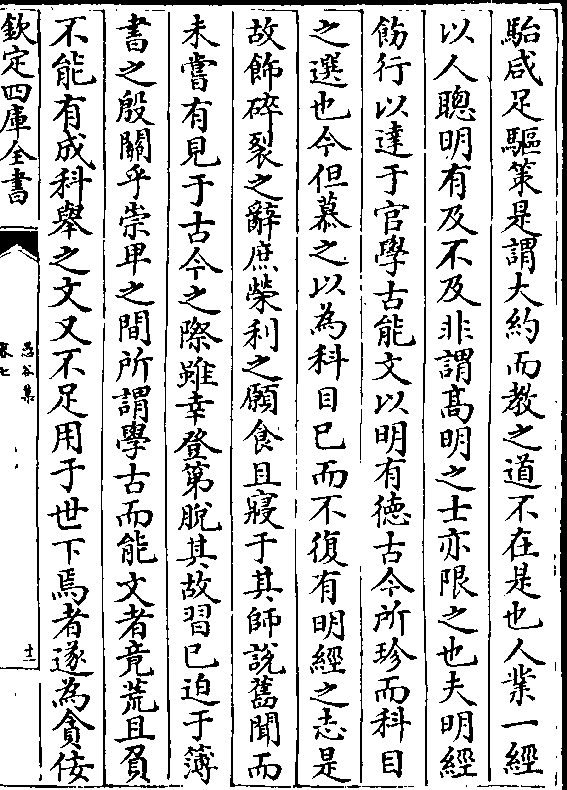 駘咸足驅策是謂大約而教之道不在是也人業一經
以人聰明有及不及非謂髙明之士亦限之也夫明經
飭行以達于官學古能文以明有徳古今所珍而科目
之選也今但慕之以為科目已而不復有明經之志是
故飾碎裂之辭庶榮利之願食且寢于其師說舊聞而
未嘗有見于古今之際雖幸登第脫其故習已迫于簿
書之殷關乎崇卑之間所謂學古而能文者竟荒且負
不能有成科舉之文又不足用于世下焉者遂為貪佞
欽定四庫全書
愚谷集
卷七
十二